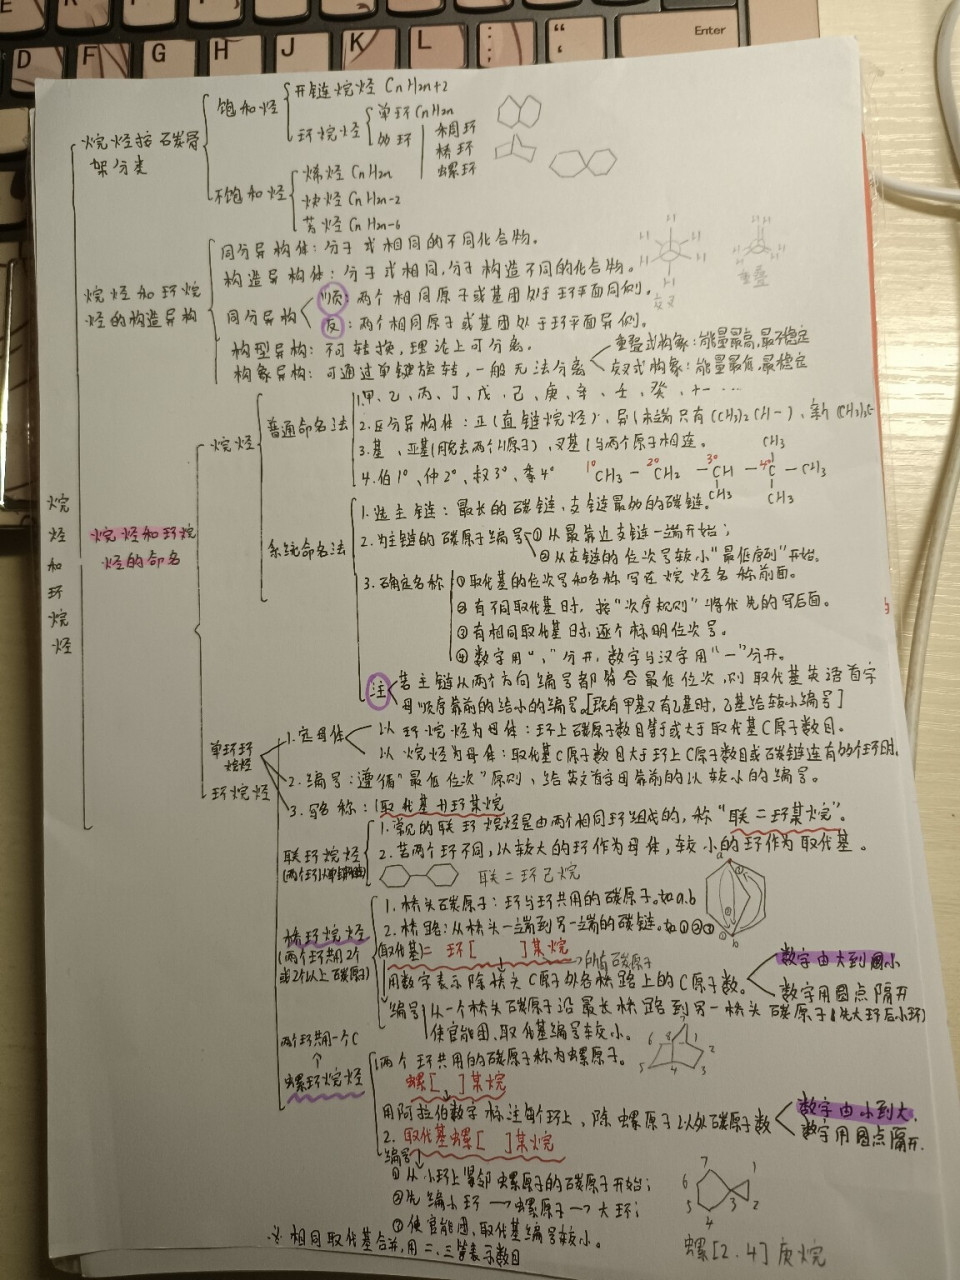 D F G H J K L Enter
饱和烃 开链烷烃 CnH2n+2
烷烃按碳骨架分类
环烷烃 单环 CnH2n
多环 稠环
桥环
螺环
不饱和烃 烯烃 CnH2n
炔烃 CnH2n-2
芳烃 CnH2n-6
烷烃和环烷烃的构造异构
同分异构体：分子式相同的不同化合物。
构造异构体：分子式相同,分子构造不同的化合物。
同分异构 顺：两个相同原子或基团处于环平面同侧。
反：两个相同原子或基团处于环平面异侧。
交叉 重叠
构型异构：不可转换,理论上可分离。
构象异构：可通过单键旋转,一般无法分离
重叠式构象：能量最高,最不稳定
交叉式构象：能量最低,最稳定
烷烃和环烷烃
烷烃和环烷烃的命名
烷烃
普通命名法 1.甲、乙、丙、丁、戊、己、庚、辛、壬、癸、十一…
2.区分异构体：正(直链烷烃)、异(末端只有(CH3)2CH-)、新(CH3)3C-
3.基、亚基(脱去两个H原子)、叉基(与两个原子相连。
4.伯1°、仲2°、叔3°、季4° 1° CH3 — 2° CH2 — 3° CH — 4° C — CH3
CH3
CH3 CH3
系统命名法 1.选主链：最长的碳链,支链最多的碳链。
2.为主链的碳原子编号 ①从最靠近支链一端开始；
②从支链的位次号较小"最低序列"开始。
3.确定名称 ①取代基的位次号和名称写在烷烃名称前面。
②有不同取代基时,按"次序规则"将优先的写后面。
③有相同取代基时,逐个标明位次号。
④数字用","分开,数字与汉字用"—"分开。
注 若主链从两个方向编号都符合最低位次,则取代基英语首字
母顺序靠前的给小的编号。[既有甲基又有乙基时,乙基给较小编号]
环烷烃
单环环烷烃
1.定母体 以环烷烃为母体：环上碳原子数目等于或大于取代基C原子数目。
以烷烃为母体：取代基C原子数目大于环上C原子数目或碳链连有多个环时。
2.编号：遵循"最低位次"原则、给英文首字母靠前的以较小的编号。
3.写名称：(取代基)环某烷
联环烷烃
1.常见的联环烷烃是由两个相同环组成的,称"联二环某烷"。
2.若两个环不同,以较大的环作为母体,较小的环作为取代基。
联二环己烷
桥环烷烃
(两个环共用2个或2个以上碳原子)
1.桥头碳原子：环与环共用的碳原子。如a.b
2.桥路：从桥头一端到另一端的碳链。如①②③
a
b
(取代基)二环[ ]某烷
用数字表示除桥头C原子外各桥路上的C原子数。
数字由大到小
数字用圆点隔开
编号 从一个桥头碳原子沿最长桥路到另一桥头碳原子(先大环后小环)
使官能团、取代基编号较小。
6 8 7 1 2 3 4 5
两个环共用一个C
螺环烷烃
1.两个环共用的碳原子称为螺原子。
螺[ ]某烷
用阿拉伯数字标注每个环上、除螺原子以外碳原子数
数字由小到大
数字用圆点隔开.
2.取代基螺[ ]某烷
编号
①从小环上紧邻螺原子的碳原子开始；
②先编小环→螺原子→大环；
③使官能团、取代基编号较小。
7 1 6 5 4 3 2
螺[2.4]庚烷
※ 相同取代基合并,用二、三等表示数目